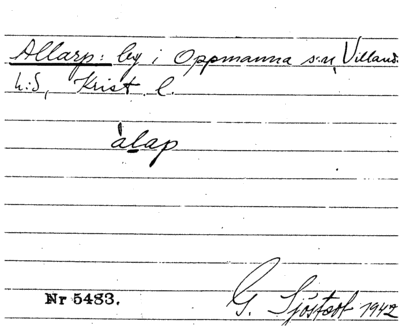 Allarp: by i Oppmanna s:n, Villands
h:d, Krist. l.
àlap
Nr 5483.
G. Sjöstedt 1942